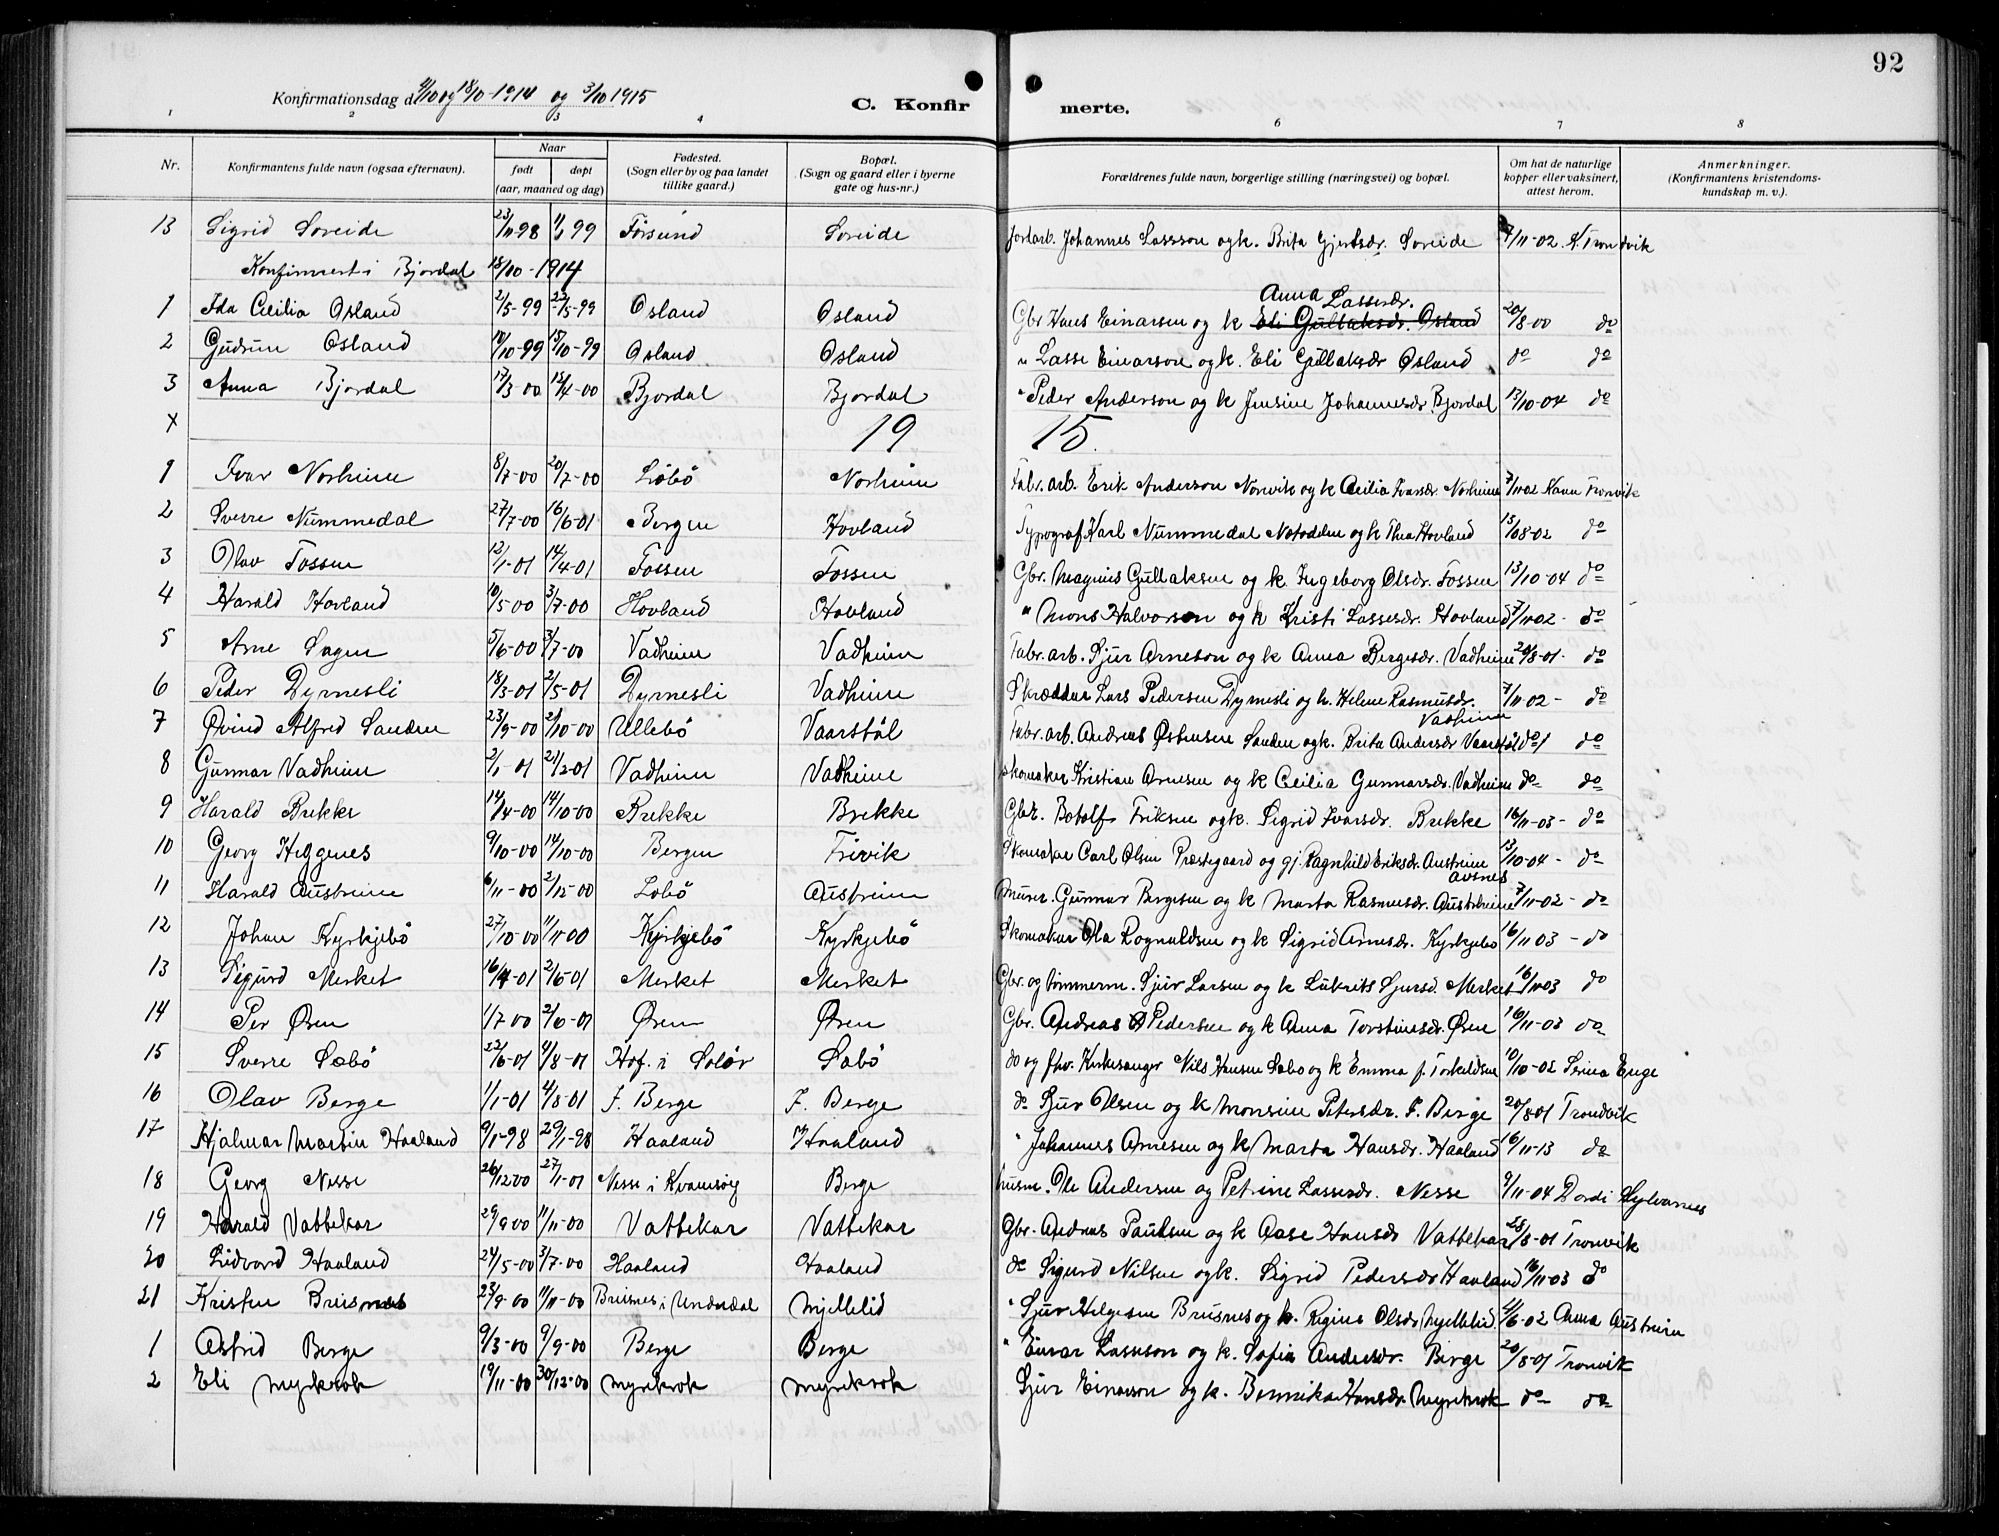 92
Konfirmationsdag d 4/10 og 18/10-1914 og 3/10 1915 C. Konfirmerte.
1 2 3 4 6 7 8
Nr. Konfirmantens fulde navn (ogsaa efternavn). Naar født døpt (aar, maaned og dag) Fødested. (Sogn eller by og paa landet tillike gaard.) Bopæl. (Sogn og gaard eller i byerne gate og hus-nr.) Forældrenes fulde navn, borgerlige stilling (næringsvei) og bopæl. Om hat de naturlige kopper eller vaksinert, attest herom. Anmerkninger. (Konfirmantens kristendomskundskap m. v.).
13 Sigrid Søreide 23/11-98 1/1 99 Førsund Søreide Jordarb. Johannes Lassson og k. Brita Gjertsdr. Søreide 7/11-02 K Trondvik
Konfirmert i Bjordal 18/10-1914
1 Ida Cecilia Osland 2/5-99 22/5-99 Osland Osland Gbr Hans Einarsen og k Eli Gullaksdr. Osland Anna Lassesdr. 20/8-00 do
2 Gudrun Osland 10/10-99 15/10-99 Osland Osland " Lasse Einarson og k. Eli Gullaksdr Osland do do
3 Anna Bjordal 17/3-00 15/4-00 Bjordal Bjordal " Peder Anderson og k Jensine Johannesdr. Bjordal 13/10-04 do
X 19 15.
1 Ivar Norheim 8/7-00 20/7-00 Ləbö Norheim Fabr. arb. Erik Anderson Norvik og k Cecilia Ivarsdr. Norheim 7/11-02 Karen Tronvik
2 Sverre Nummedal 27/7-00 16/6-01 Bergen Hovland Typograf Karl Nummedal Notodden og k Thea Hovland 13/08-02 do
3 Olav Fossen 12/1-01 14/4-01 Fossen Fossen Gbr. Magnus Gullaksen og k. Ingeborg Olsdr. Fossen 13/10-04 do
4 Harald Hovland 10/5-00 3/7-00 Hovland Hovland " Mons Halvorson og k Kristi Lassesdr. Hovland 7/11-02- do
5 Arne Sagen 5/6-00 3/7-00 Vadheim Vadheim Fabr. arb. Sjur Arneson og k Anna Bergesdr. Vadheim 20/8-01- do
6 Peder Dyrnesli 18/3-01 2/5-01 Dyrnesli Vadheim Skrædder Lars Pedersen Dyrnesli og k. Helene Rasmusdr. Vadheim 7/11-02- do
7 Øvind Alfred Sanden 23/9-00 2/10-00 Ullebö Vaarstöl Fabr. arb. Andreas Østensen Sanden og k. Brita Andersdr Vaarstöl do do
8 Gunnar Vadheim 2/1-01 2/2-01 Vadheim Vadheim Skomaker Kristian Arnesen og k Cecilia Gunnarsdr. Vadheim do do
9 Harald Brekke 14/4-00 14/10-00 Brekke Brekke Gbr. Botolf Eriksen og k. Sigrid Ivarsdr. Brekke 16/11-03- do
10 Georg Heggenes 9/10-00 14/10-00 Bergen Frivik Skomaker Carl Olsen Præstegaard og gj. Ragnhild Eriksdr. Austreim 13/10-04- do
11 Harald Austreim 6/11-00 2/12-00 Ləbö Austreim Murer. Gunnar Bergesen Avsnes og k Marta Rasmusdr. Austreim 7/11-02- do
12 Johan Kyrkjebö 27/10-00 11/11-00 Kyrkjebö Kyrkjebö Skomaker Ola Rognaldsen og k Sigrid Arnesdr. Kyrkjebö 16/11 03- do
13 Sigurd Merket 16/4-01 2/6-01 Merket Merket Gbr. og tömmerm. Sjur Larsen og k Lukrits Sjursd. Merket 16/11-03 do
14 Per Øren 1/7 00 2/6-01 Øren Øren Gbr. Andreas Pedersen og k Anna Torstinesdr. Øren 16/11-03 do
15 Sverre Sæbö 22/6-01 4/8-01 Hof. i Solör Sæbö do og fhv. Kirkesanger Nils Hansen Sæbo og k Emma f. Torkeldsen 10/10-02 Serina Enge
16 Olav Berge 1/1-01 4/8-01 J. Berge J. Berge do Sjur Olsen og k Monsine Petersdr. J. Berge 20/8-01 Trondvik
17 Hjalmar Martin Haaland 9/1-98 29/1-98 Haaland Haaland " Johannes Arnesen og k Marta Hansdr. Haaland 16/11-13 do
18 Georg Nesse 26/12 00 27/1-01 Nesse i Kvamsøy Berge husm. Ole Andersen og Petrine Lassesdr. Nesse 9/11-04 Dordi Sylvarnes
19 Harald Vattekar 29/9 00 11/11-00 Vattekar Vattekar Gbr. Andreas Paulsen og k Aase Hansdr Vattekar 28/8-01 Tronvik
20 Lidvard Haaland 24/5-00 3/7-00 Haaland Haaland do Sigurd Nilsen og k. Sigrid Pedersdr Haaland 16/11-03 do
21 Kristen Brusnes 23/9-00 11/11-00 Brusnes i Undredal Mjellelid " Sjur Helgesen Brusnes og k. Regine Olsdr Mjellelid. 4/6-02 Anna Austreim
1 Astrid Berge 9/3-00 9/9-00 Berge Berge " Einar Lassson og k. Sofia Andersdr. Berge 20/8-01 Tronvik
2 Eli Myrkrok 19/11-00 30/12-00 Myrekrok Myrekrok Sjur Einarson og k. Bennika Hansdr. Myrekrok do do